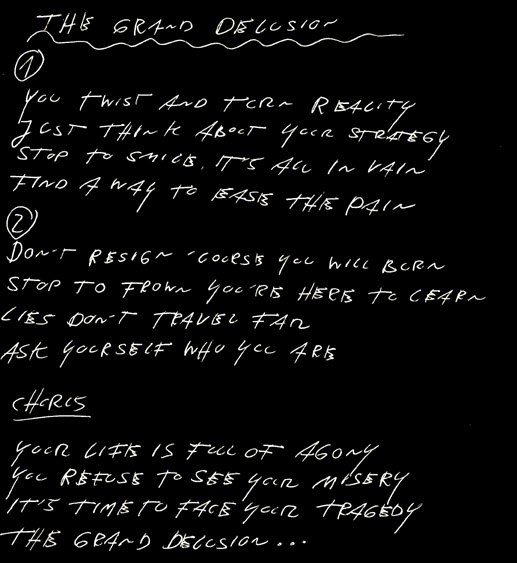 THE GRAND DELUSION
1
YOU TWIST AND TURN REALITY
JUST THINK ABOUT YOUR STRATEGY
STOP TO SMILE, IT'S ALL IN VAIN
FIND A WAY TO EASE THE PAIN
2
DON'T RESIGN 'COURSE YOU WILL BURN
STOP TO FROWN YOU'RE HERE TO LEARN
LIES DON'T TRAVEL FAR
ASK YOURSELF WHO YOU ARE
CHORUS
YOUR LIFE IS FULL OF AGONY
YOU REFUSE TO SEE YOUR MISERY
IT'S TIME TO FACE YOUR TRAGEDY
THE GRAND DELUSION...